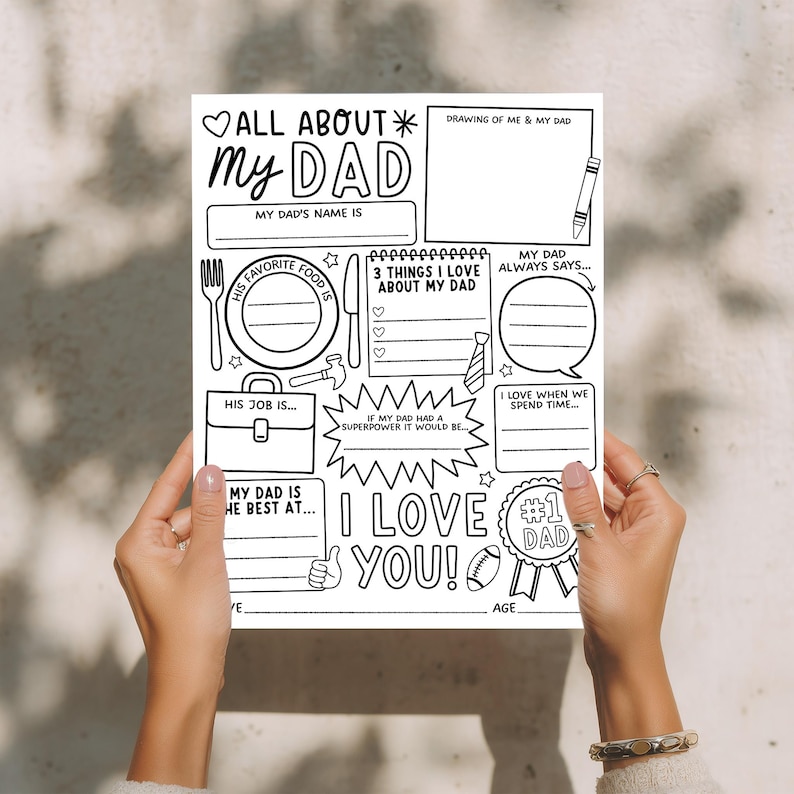 ALL ABOUT
My DAD
DRAWING OF ME & MY DAD
MY DAD'S NAME IS
HIS FAVORITE FOOD IS
3 THINGS I LOVE
ABOUT MY DAD
MY DAD
ALWAYS SAYS...
HIS JOB IS...
IF MY DAD HAD A
SUPERPOWER IT WOULD BE...
I LOVE WHEN WE
SPEND TIME...
MY DAD IS
THE BEST AT...
I LOVE
YOU!
#1
DAD
AGE